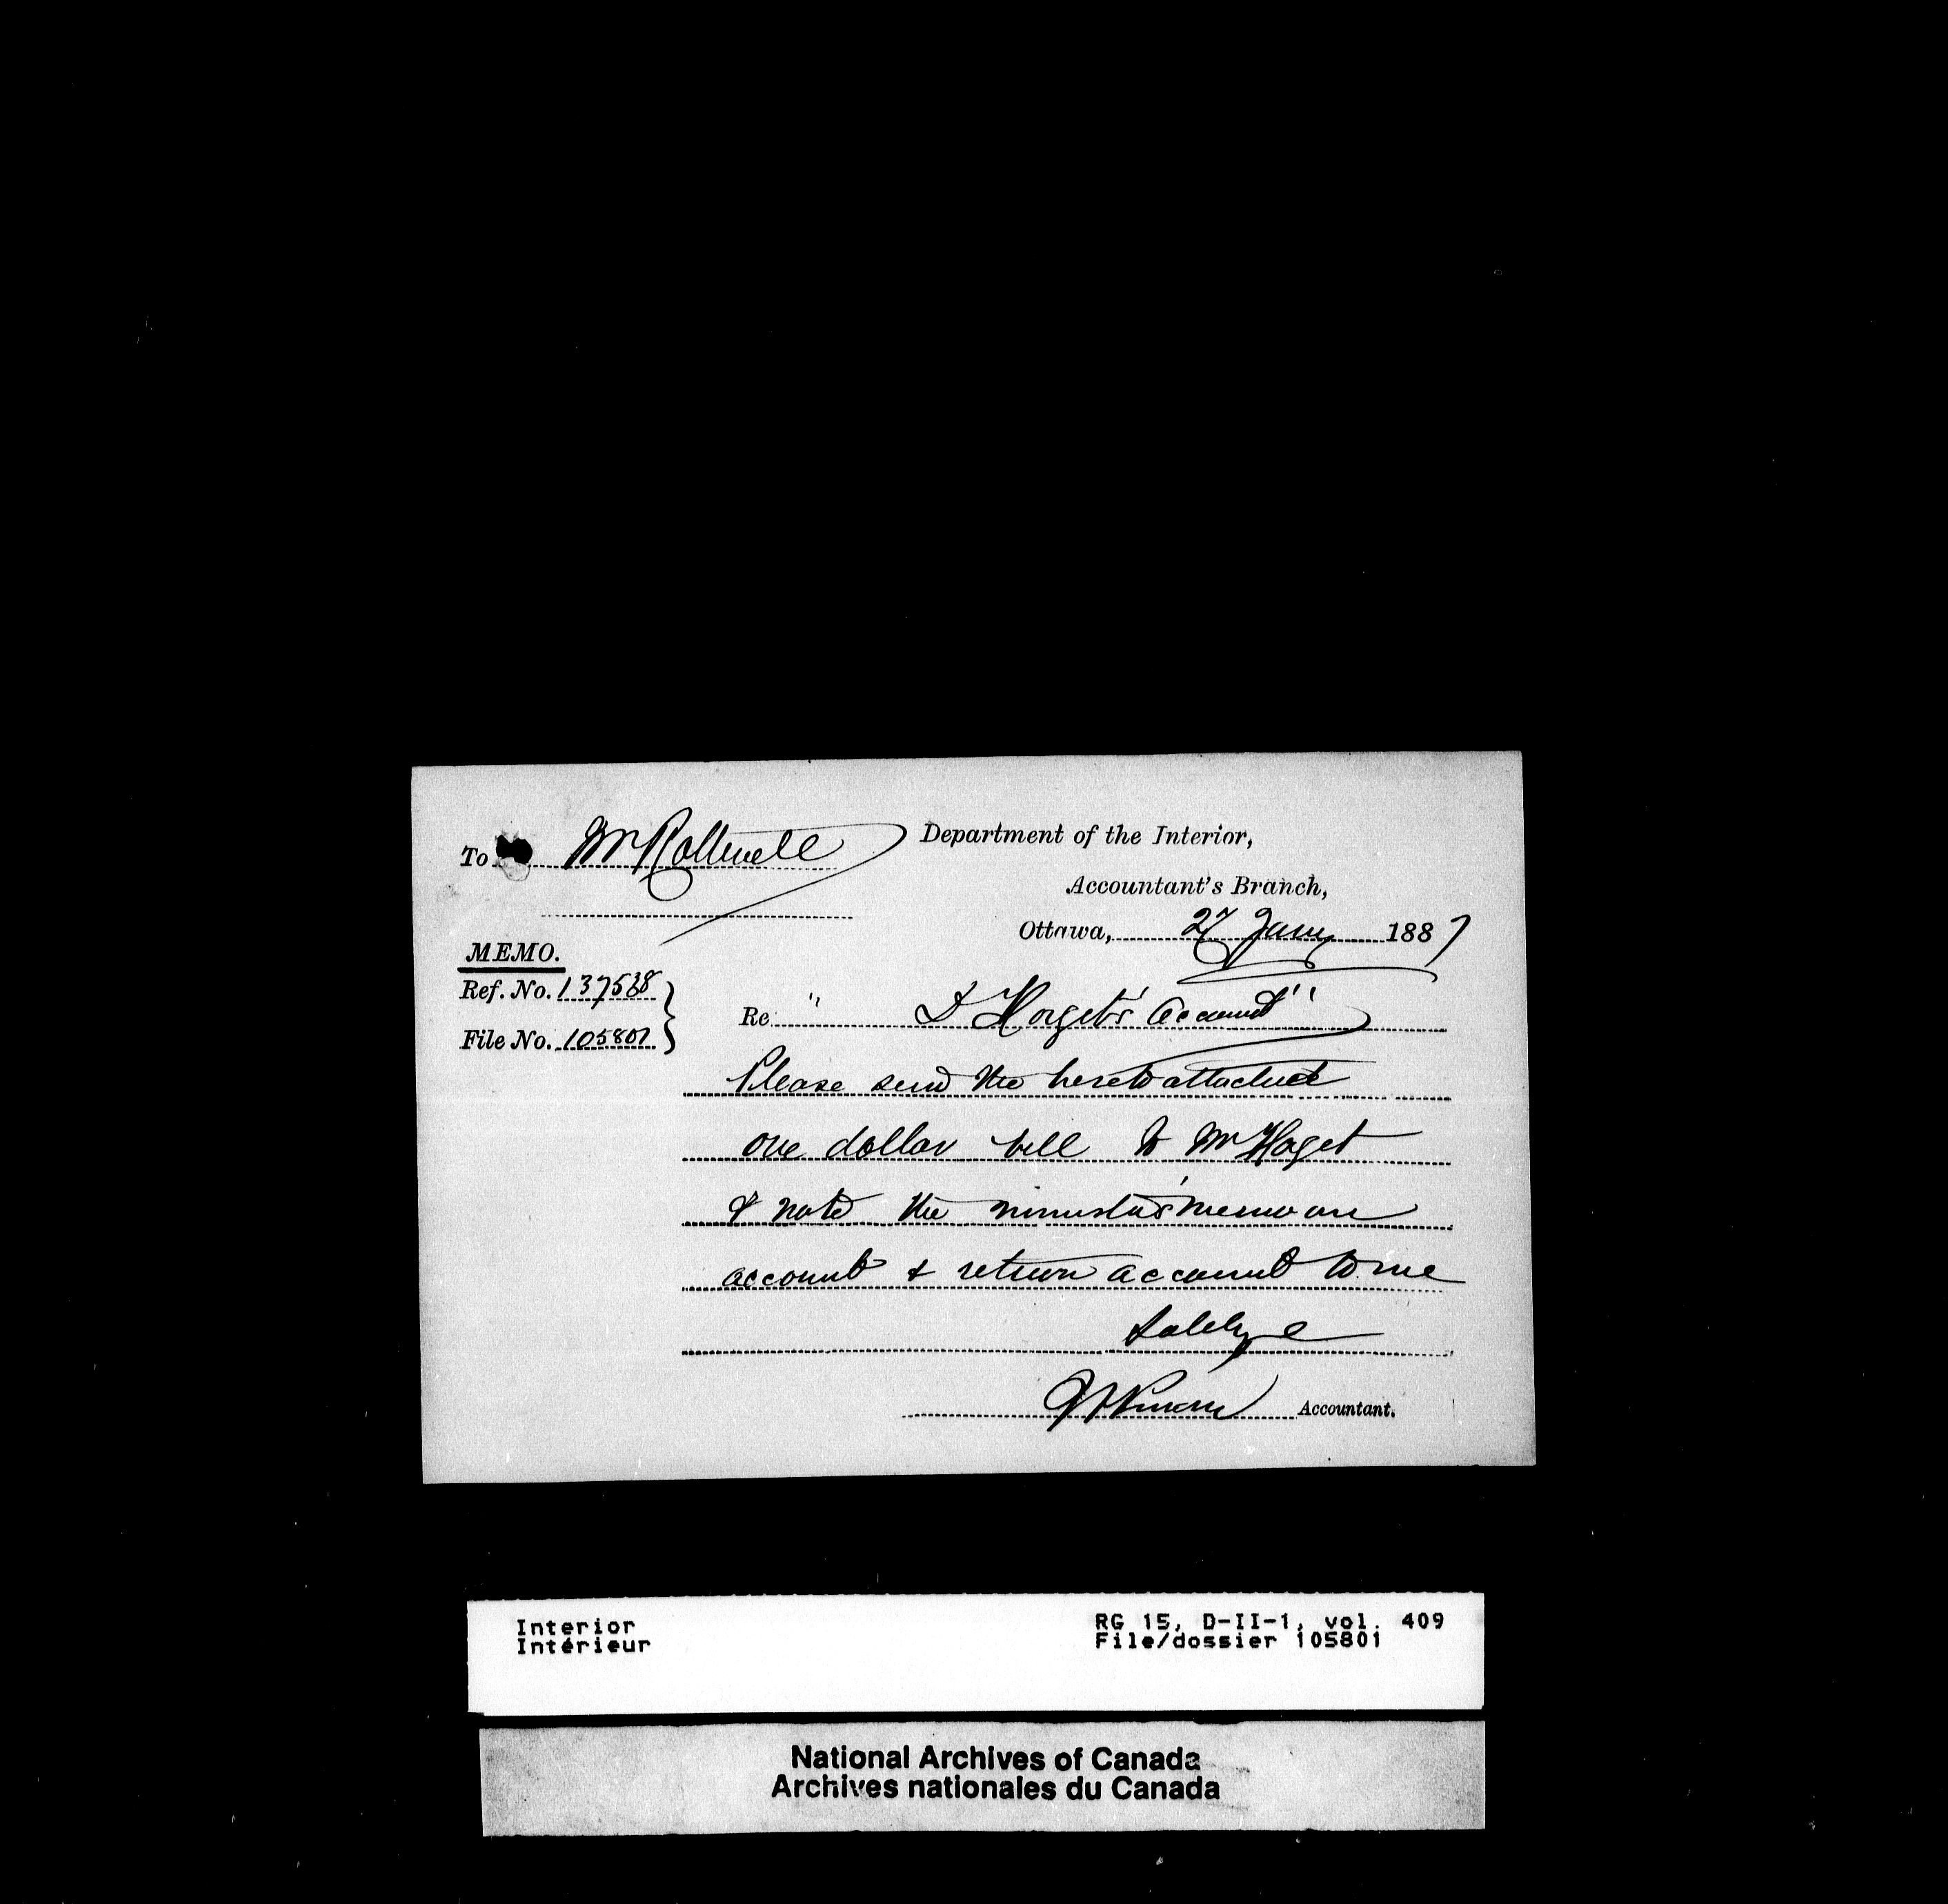 To Mr Rothwell
Department of the Interior,
Accountant's Branch,
Ottawa, 27 Jany 1887
MEMO.
Ref. No. 137538
File No. 105801
Re " Forget's Account"
Please send the hereto attached
one dollar bill to Mr Forget
& note the minister's memo on
account & return account to me
Accountant.
Interior
Intérieur
RG 15, D-II-1, vol. 409
File/dossier 105801
National Archives of Canada
Archives nationales du Canada